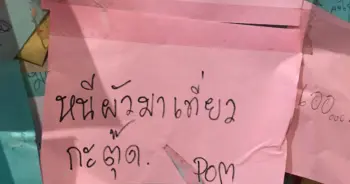 หนีผัวมาเที่ยว
กะตุ๊ด.
Pom